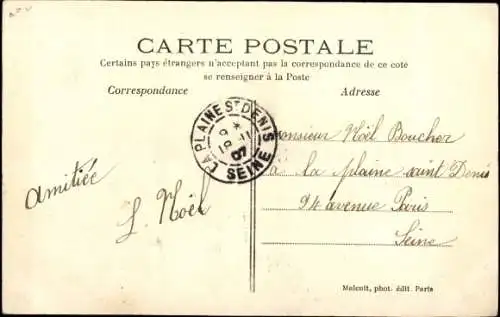 CARTE POSTALE
Certains pays étrangers n'acceptant pas la correspondance de ce coté
se renseigner à la Poste
Correspondance
Adresse
LA PLAINE ST DENIS
SEINE
07
Monsieur Noël Boucher
à la plaine saint Denis
94 avenue Paris
Seine
Amitiée
L. Noël
Malcuit, phot. édit. Paris